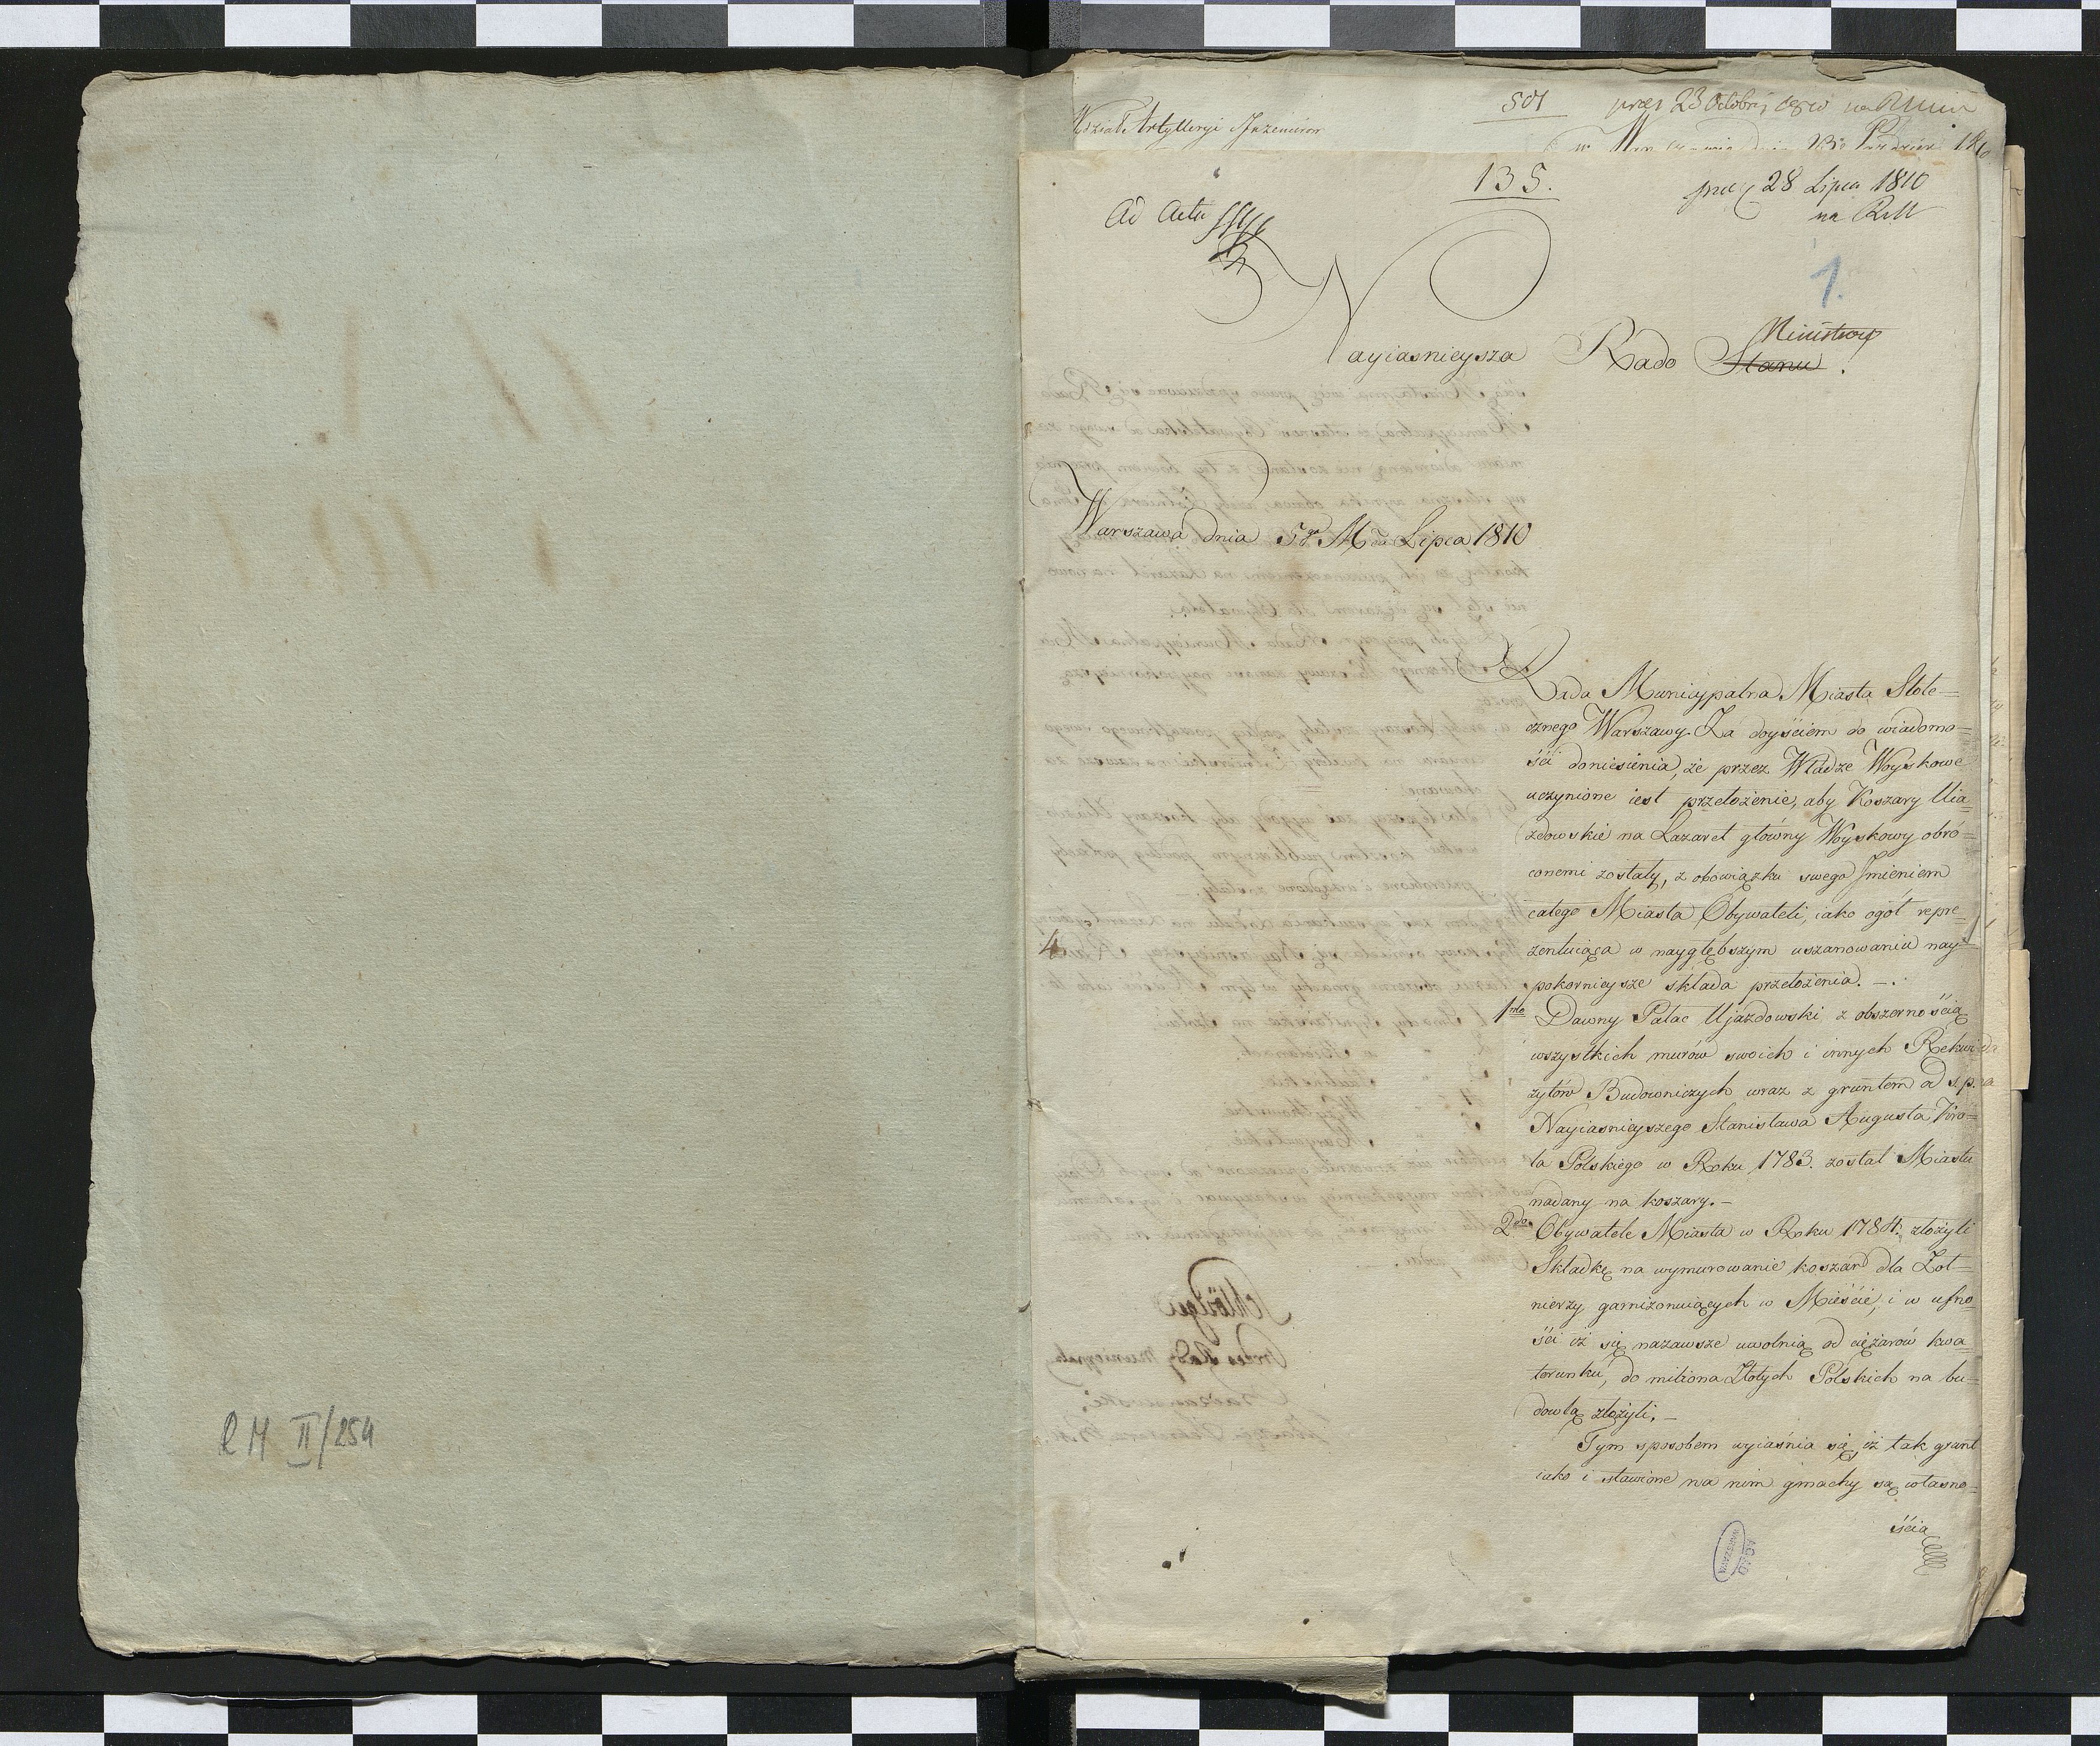 R M II/254
501
Artylleryi
135.
28 Lipca 1810
na RM
Ad Acta
1.
Ministrow
Nayiasnieysza Rado Stanu.
Warszawa dnia 5go Mca Lipca 1810
Rada Municypalna Miasta Stołe=
cznego Warszawy. Za doyściem do wiadomo=
ści doniesienia, że przez Władze Woyskowe
uczynione iest przełożenie, aby Koszary Uia=
zdowskie na Lazaret główny Woyskowy obró=
conemi zostały, z obowiązku swego Jmieniem
całego Miasta Obywateli, iako ogół repre=
zentuiąca w naygłębszym uszanowaniu nay=
pokornieysze składa przełożenia. —.
4
1mo Dawny Pałac Ujazdowski z obszernością
wszystkich murów swoich i innych Rekwi=
zytów Budowniczych wraz z gruntem od ś. p.
Nayiasnieyszego Stanisława Augusta Kró=
la Polskiego w Roku 1783. został Miastu
nadany na koszary. —
2do Obywatele Miasta w Roku 1784. złożyli
Składkę na wymurowanie koszar dla Żoł=
nierzy garnizonuiących w Mieście, i w ufno=
ści iż się nazawsze uwolnią od ciężarów kwa=
terunku, do miliona Złotych Polskich na bu=
dowlą złożyli. —
Tym sposobem wyiaśnia się, iż tak grunt
iako i stawione na nim gmachy są własno=
ścią
AGAD
WARSZAWA